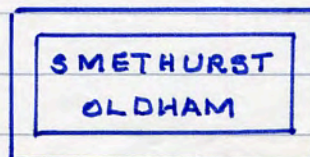 SMETHURST
OLDHAM